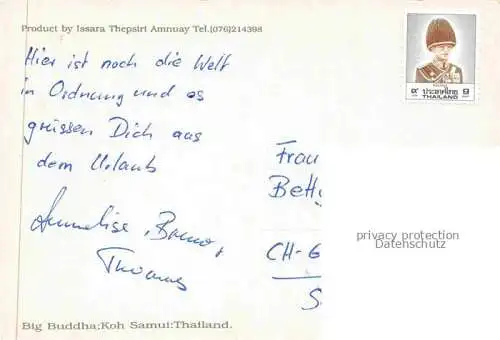 Product by Issara Thepsirt Amnuay Tel.(076)214398
ประเทศไทย
THAILAND
Hier ist noch die Welt
in Ordnung und es
grüssen Dich aus
dem Urlaub
Annelise, Bruno,
Thomas
Frau
Betty
CH-6
S
privacy protection
Datenschutz
Big Buddha:Koh Samui:Thailand.